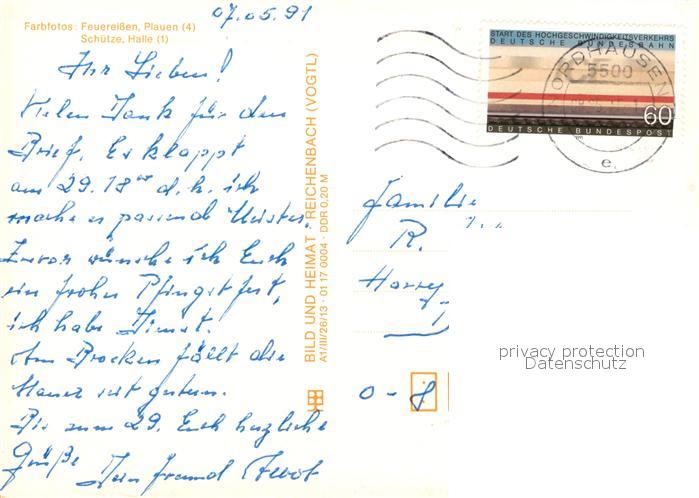 07.05.91
Farbfotos: Feuereißen, Plauen (4)
Schütze, Halle (1)
Ihr Lieben!
Vielen Dank für den
Brief. Es klappt
am 29. 18⁰⁰ d.h. ich
mache es passend
Zuvor wünsche ich Euch
ein frohes Pfingstfest,
ich habe Dienst.
Am Brocken fällt die
Mauer seit gestern.
Bis zum 29. Euch herzliche
Grüße Dein Freund
BILD UND HEIMAT · REICHENBACH (VOGTL)
A1/III/26/13 · 01 17 0004 · DDR 0,20 M
START DES HOCHGESCHWINDIGKEITSVERKEHRS
DEUTSCHE BUNDESBAHN
60
DEUTSCHE BUNDESPOST
NORDHAUSEN
5500
e
Familie
R.
Harry
O -
privacy protection
Datenschutz